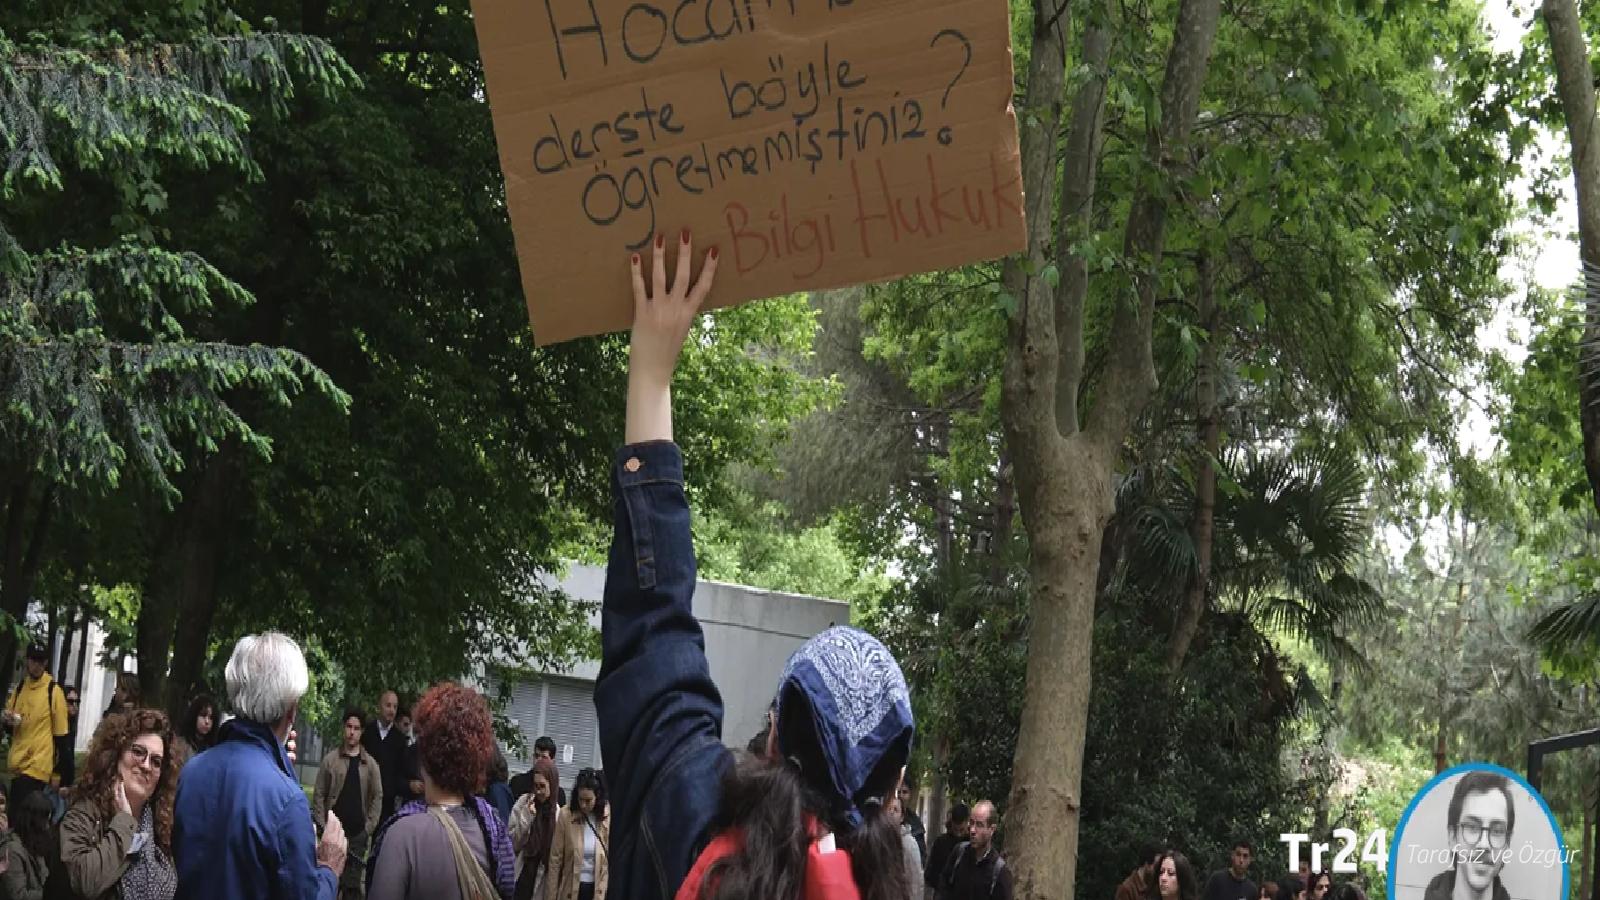 Hocam
derste böyle
öğretmemiştiniz?
Bilgi Hukuk
Tr24
Tarafsız ve Özgür